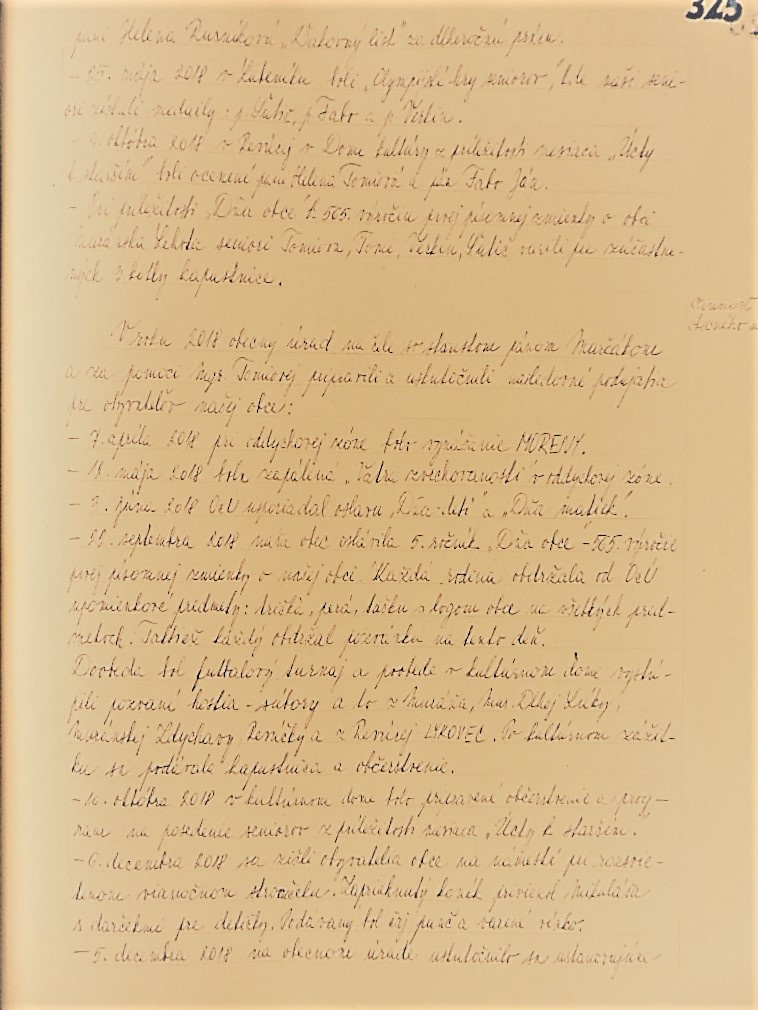 325
pani Helena Rusníková „Ďakovný list" za dlhoročnú prácu.
- 25. mája 2018 v Lubeníku boli „Olympijské hry seniorov", kde naši seni-
ori získali medaily: p. Šutič, p. Fabo a p. Verkin.
- 9. októbra 2018 v Revúcej v Dome kultúry z príležitosti mesiaca „Úcty
k starším" boli ocenení pani Helena Tomiová a pán Fabo Ján.
- Pri príležitosti „Dňa obce" k 505. výročiu prvej písomnej zmienky o obci
Muránska Lehota seniori Tomiova, Tomi, Verkin, Šutič varili pre zúčastne-
ných 3 kotly kapustnice.
Činnosť
obecného
V roku 2018 obecný úrad na čele so starostom pánom Murčákom
a za pomoci Mgr. Tomiovej pripravili a uskutočnili nasledovné podujatia
pre obyvateľov našej obce:
- 7. apríla 2018 pri oddychovej zóne bolo vynášanie MORENY.
- 18. mája 2018 bola zapálená „Vatra zvrchovanosti" v oddychovej zóne.
- 3. júna 2018 OcÚ usporiadal oslavu „Dňa detí" a „Dňa matiek".
- 22. septembra 2018 naša obec oslávila 5. ročník „Dňa obce - 505. výročie
prvej písomnej zmienky o našej obci. Každá rodina obdržala od OcÚ
upomienkové predmety: tričká, perá, tašku s logom obce na všetkých pred-
metoch. Taktiež každý obdržal pozvánku na tento deň.
Doobeda bol futbalový turnaj a poobede v kultúrnom dome vystú-
pili pozvané hostia - súbory a to z Muráňa, Mur. Dlhej Lúky,
Muránskej Zdychavy, Revúčky a z Revúcej LYKOVEC. Po kultúrnom zážit-
ku sa podávala kapustnica a občerstvenie.
- 10. októbra 2018 v kultúrnom dome bolo pripravené občerstvenie a prog-
ram na posedenie seniorov z príležitosti mesiaca „Úcty k starším."
- 6. decembra 2018 sa zišli obyvatelia obce na námestí pri rozsvie-
tenom vianočnom stromčeku. Zapriahnutý koník priviezol Mikuláša
s darčekmi pre detičky. Podávaný bol čaj, punč a varené vínko.
- 5. decembra 2018 na obecnom úrade uskutočnilo sa ustanovujúce